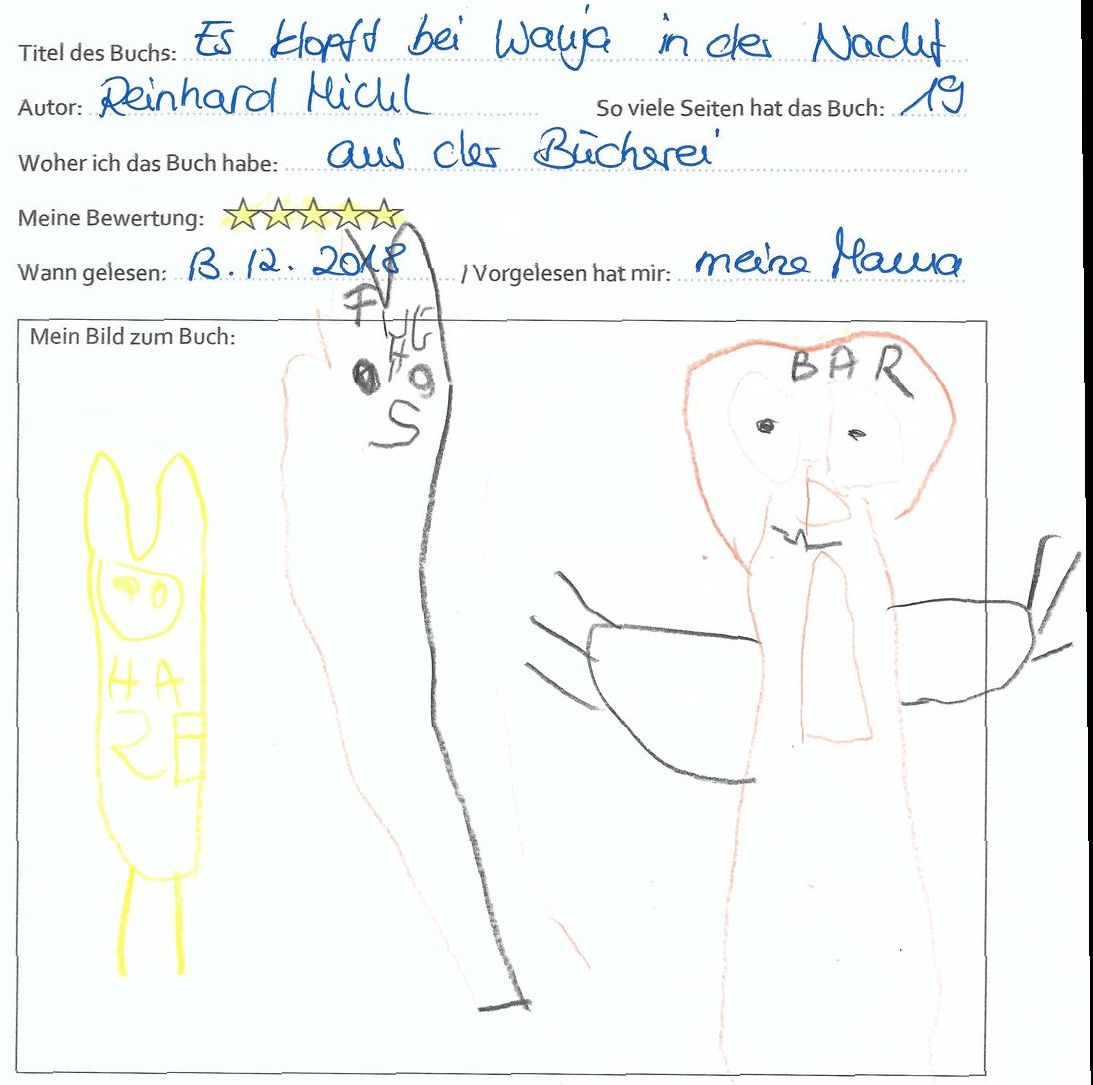 Titel des Buchs: Es klopft bei Wanja in der Nacht
Autor: Reinhard Michl So viele Seiten hat das Buch: 19
Woher ich das Buch habe: aus der Bücherei
Meine Bewertung:
Wann gelesen: 13.12.2018 / Vorgelesen hat mir: meine Mama
Mein Bild zum Buch:
BAR
F
S
HA